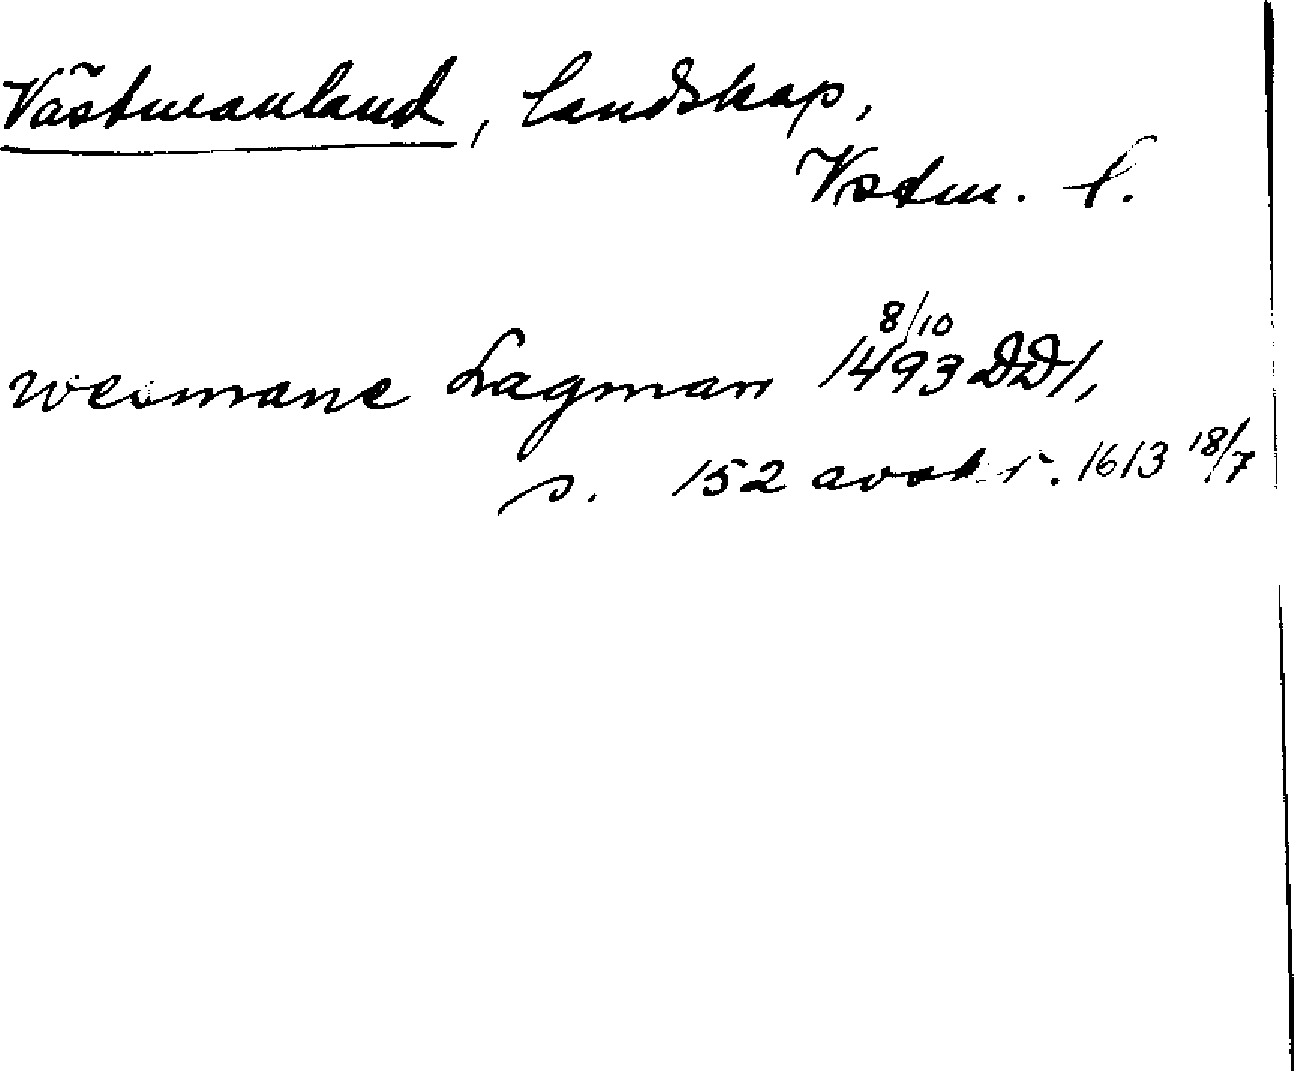 Västmanland, landskap,
Vstm. l.
wesmane Lagman 1493 8/10 DD1,
s. 152 avskr. 1613 18/7